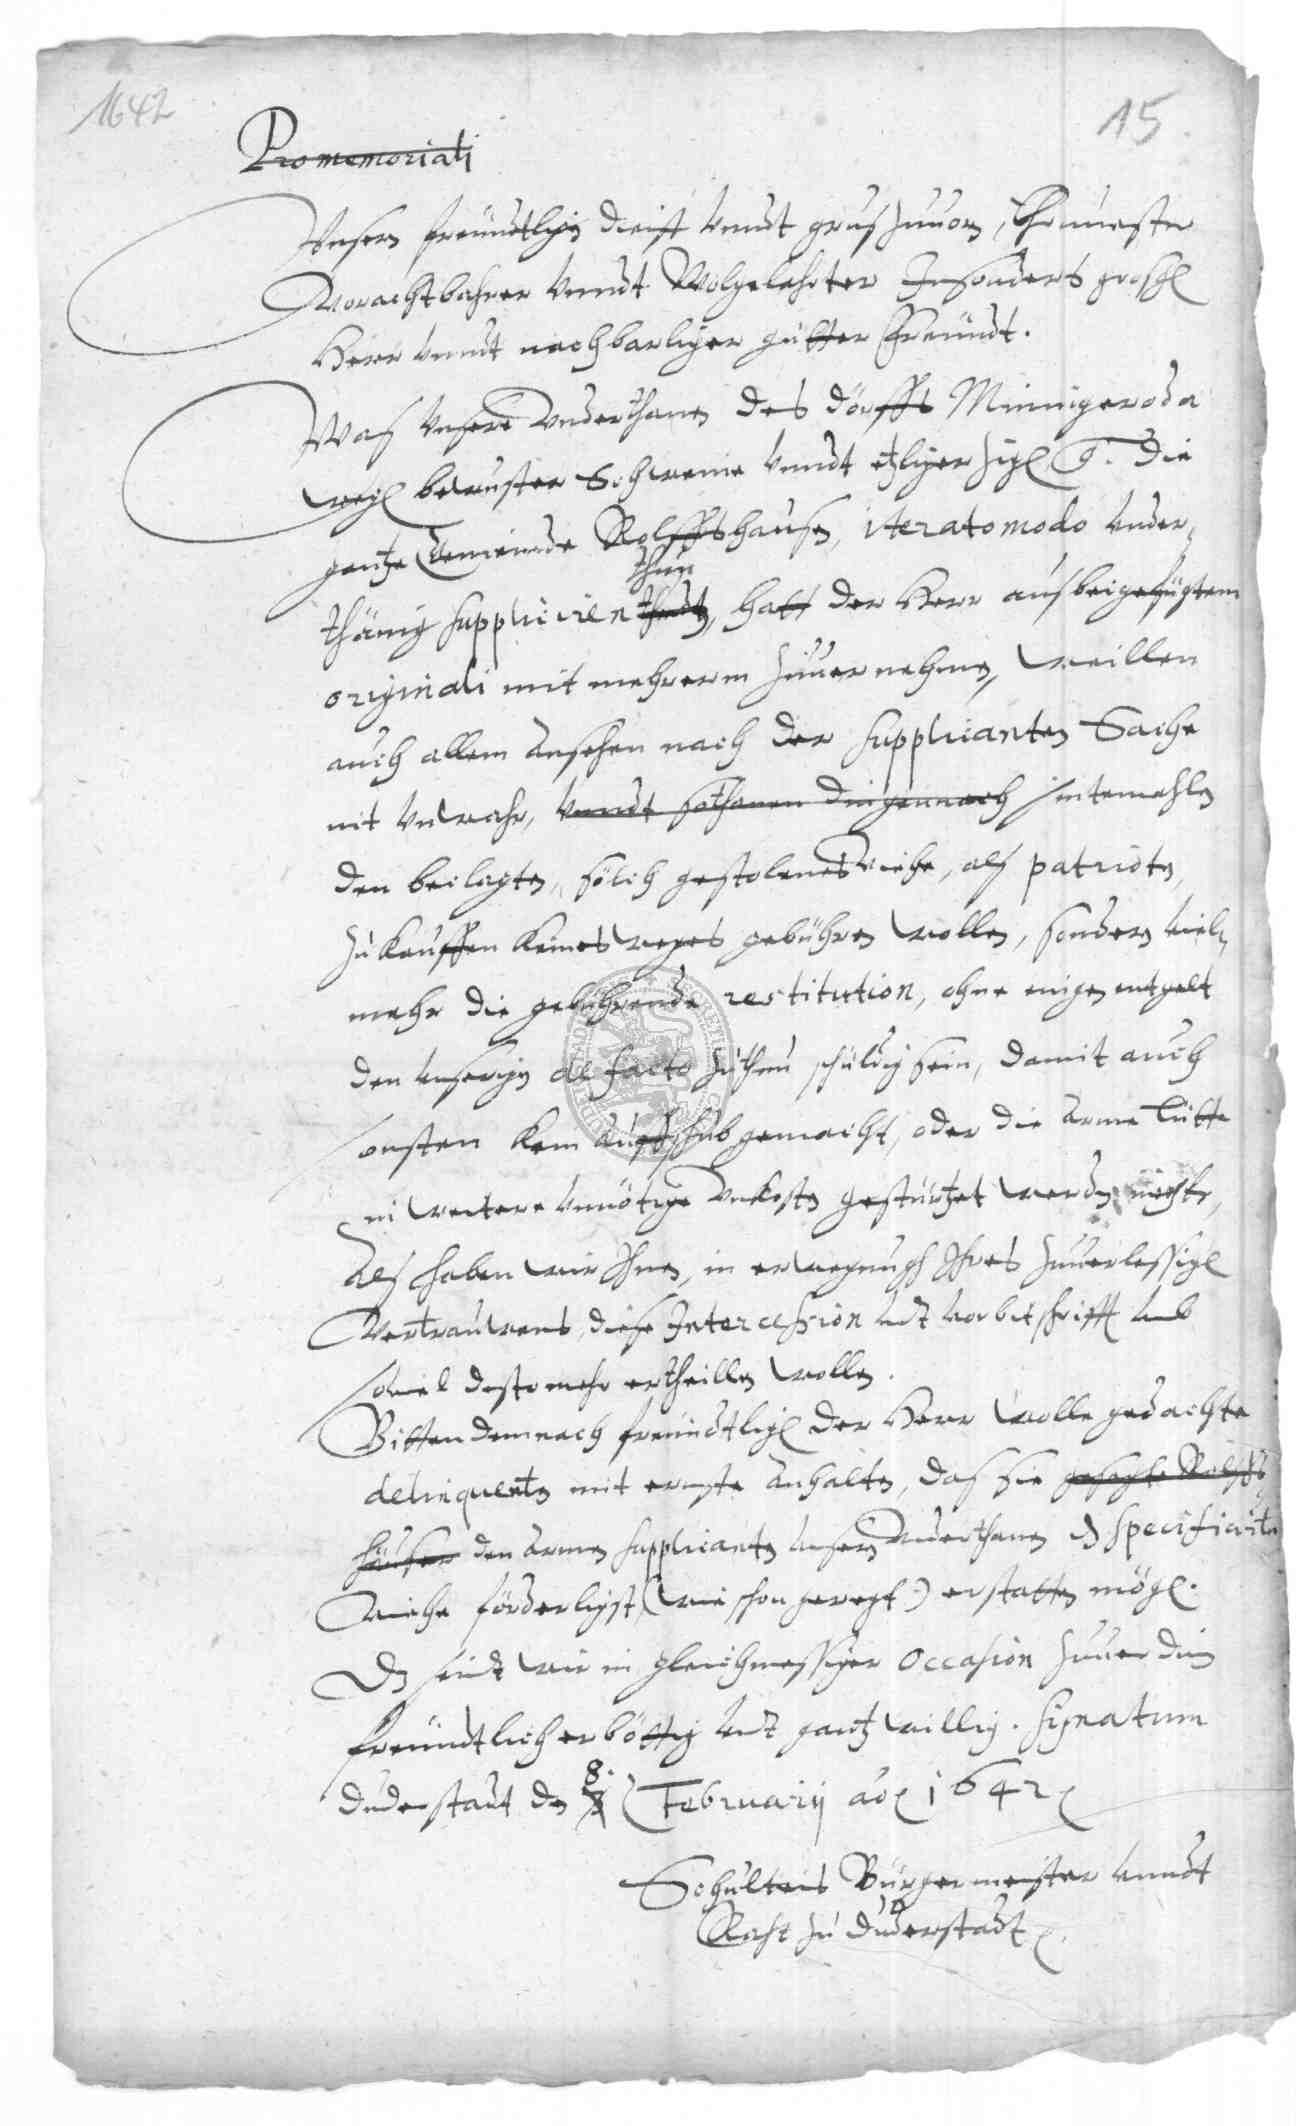 1642
15
Pro memoriali
Unsern freundtlichen dienst unndt grus zuuorn, Ehrnuester
Vorachtbahrer unndt Wolgelahrter Insonders großg.
Herr unndt nachbarlicher gutter Freundt.
Was unsere Underthanen des dörffs Minnigeroda
weg. bewuster Schweine unndt etzlicher die
gantze Gemeinde Rolffshausen, iterato modo under-
thänig supplicien thun, hatt der Herr aus beigefügtem
originali mit mehrerm zuuernehmen, weillen
auch allem ansehen nach der supplicanten Sache
nit unwahr, unndt sothanen dingen nach sintemahlen
den beclagten, solch gestolenes Viehe, als patrioten
zu kauffen keines weges gebühren wollen, sondern viel-
mehr die gebührende restitution, ohne einigen entgelt
den unserigen de facto zu thun schuldig sein, damit auch
sonsten kein auffschub gemacht, oder die arme Lütte
in weitere unnötige Unkosten gestürtzet werden möchte,
Als haben wir Ihnen, in erwegungh Ihres zuuerlessig.
Vertrauwens, diese Intercession undt vorbitschrifft umb
soviel destomehr ertheillen wollen.
Bitten demnach freundtlich der Herr wolle gedachte
delinquenten mit ernste anhalten, das sie gesagte Rolffs-
häuser den armen supplicanten unsern Underthanen specificirte
Viehe förderligst, (wie schon geregt) erstatten mög.
Das seindt wir in gleichmessiger occasion zuuerdin
freundtlich erböttig undt gantz willig. Signatum
Duderstadt den 8. Februarij ao 1642
Schulteis Bürgermeister unndt
Raht zu Duderstadt